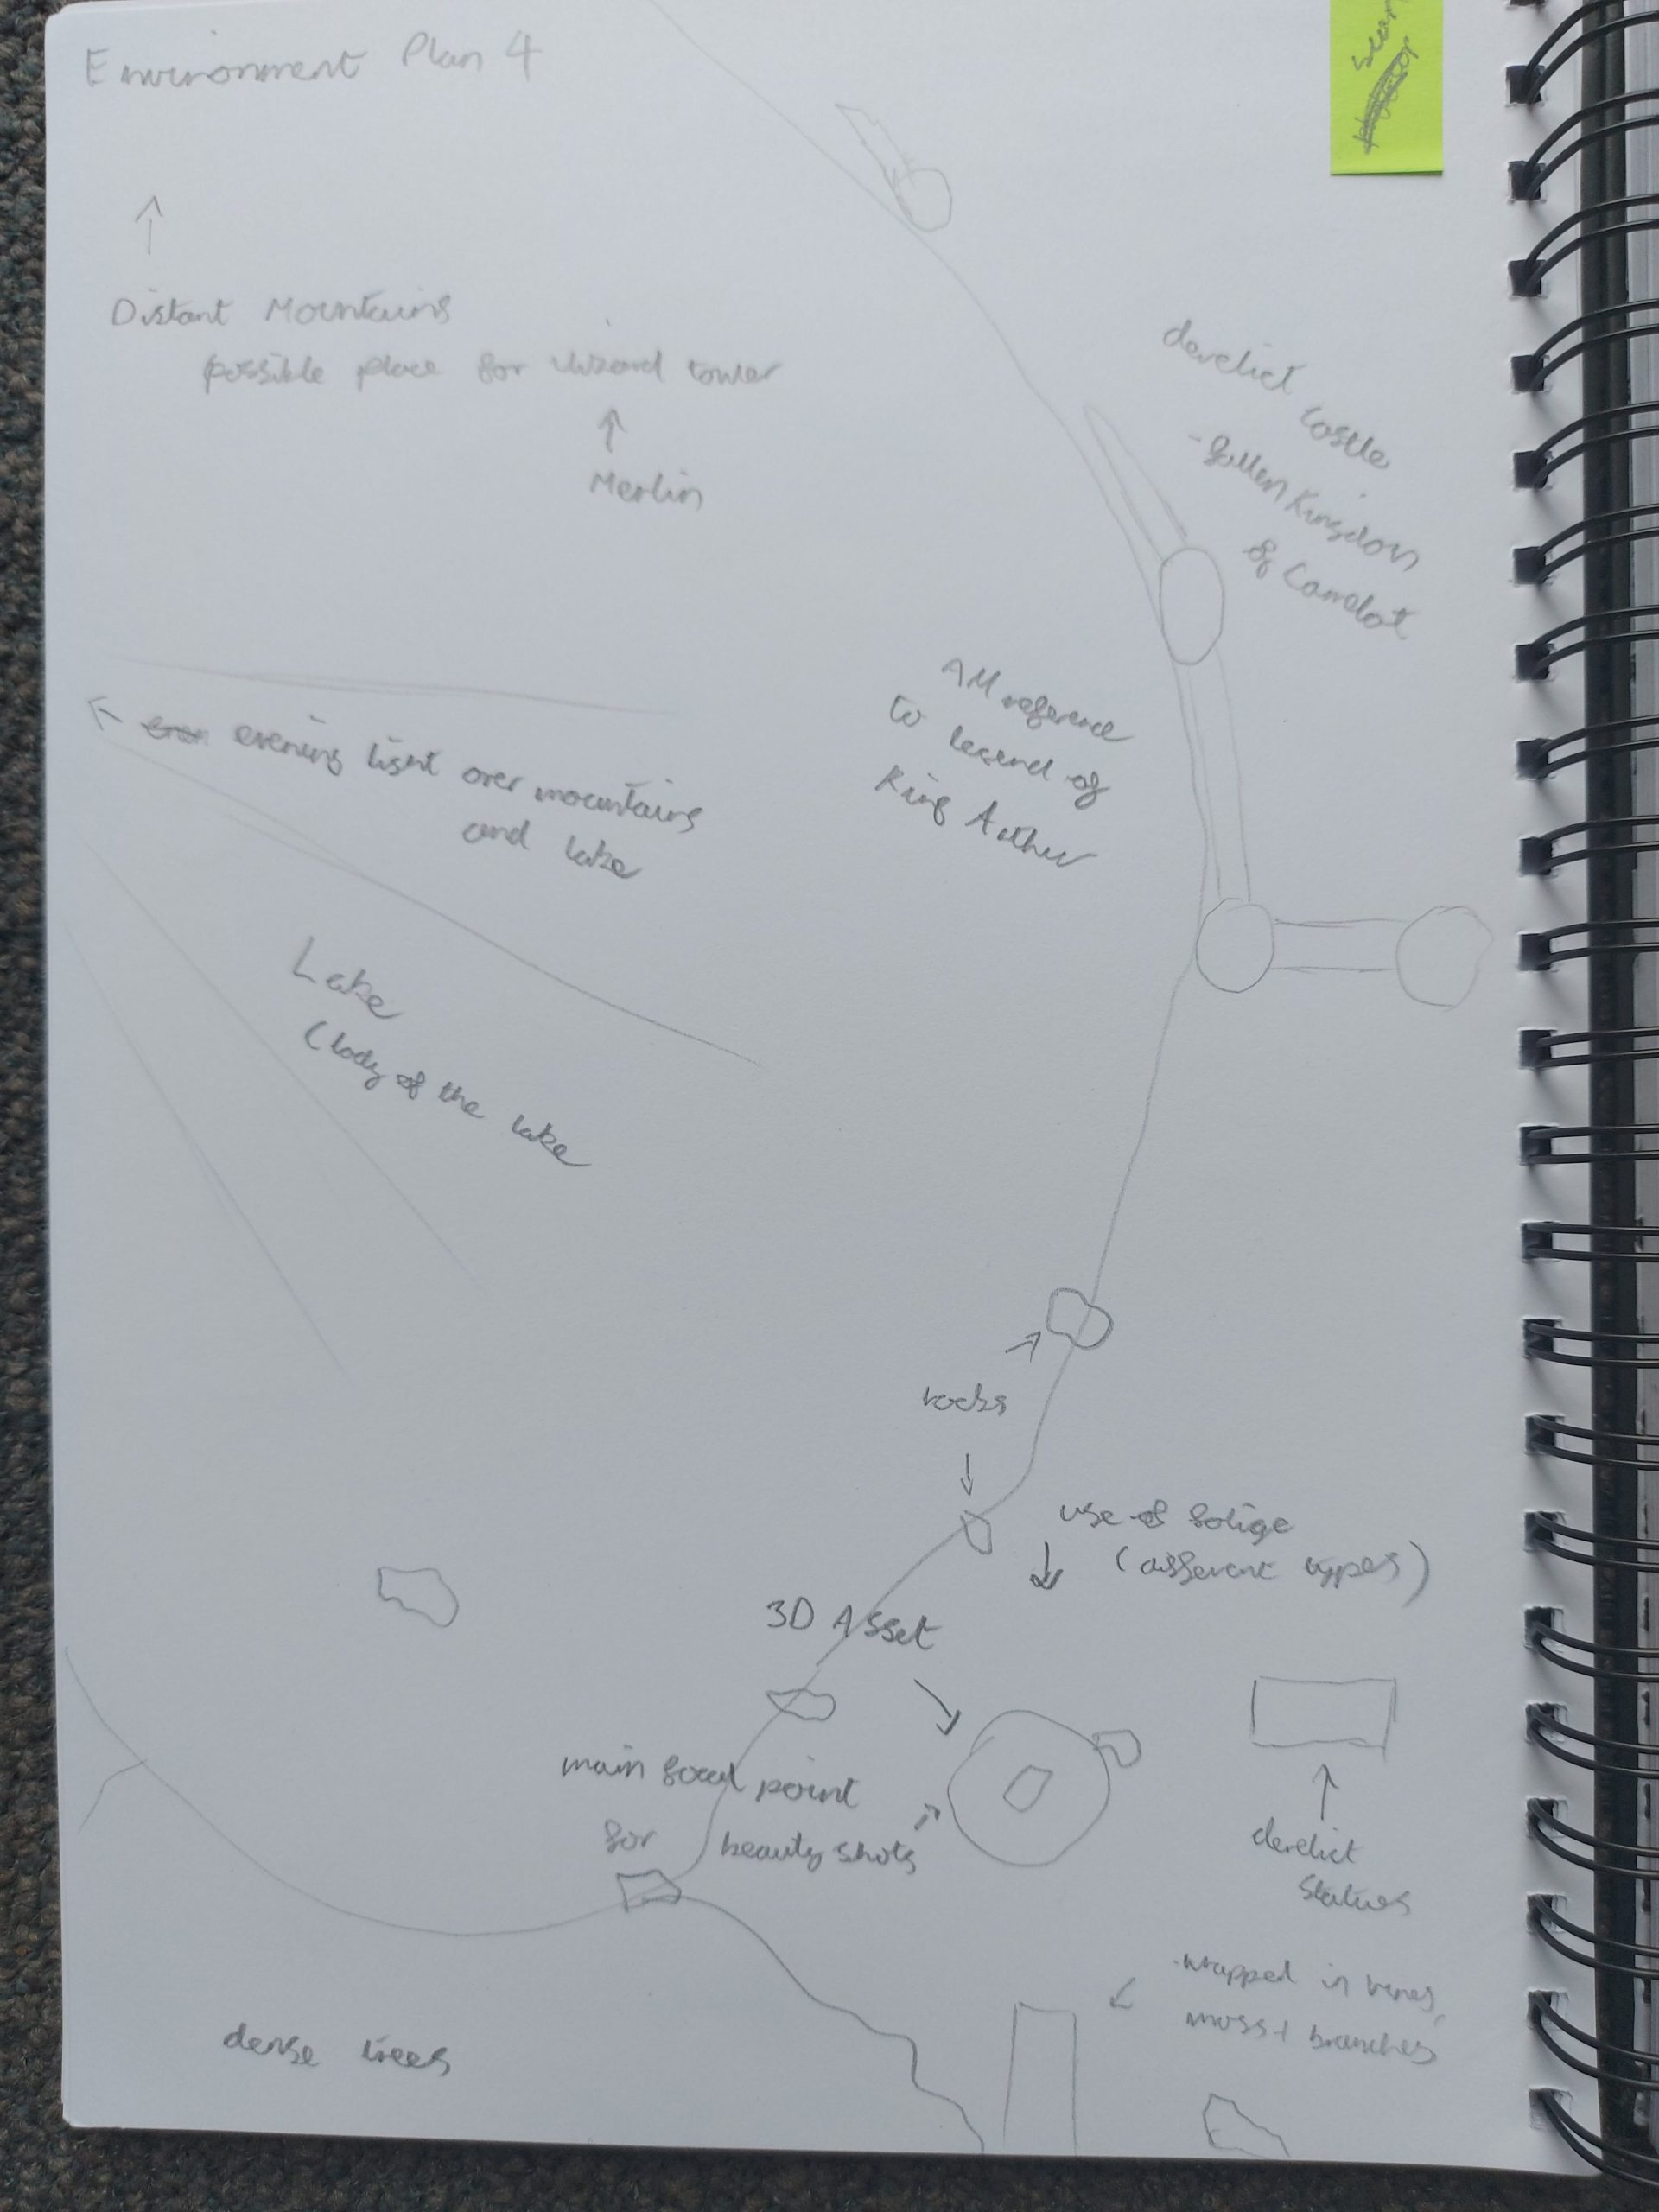 Environment Plan 4
Distant Mountains
possible place for wizard tower
Merlin
derelict castle
- fallen Kingdom
of Camelot
All reference
to legend of
King Auther
evening light over mountains
and lake
Lake
(lady of the lake
rocks
use of folige
(different types)
3D Asset
main focal point
for beauty shots
derelict
Statues
- wrapped in vines,
moss + branches
dense trees